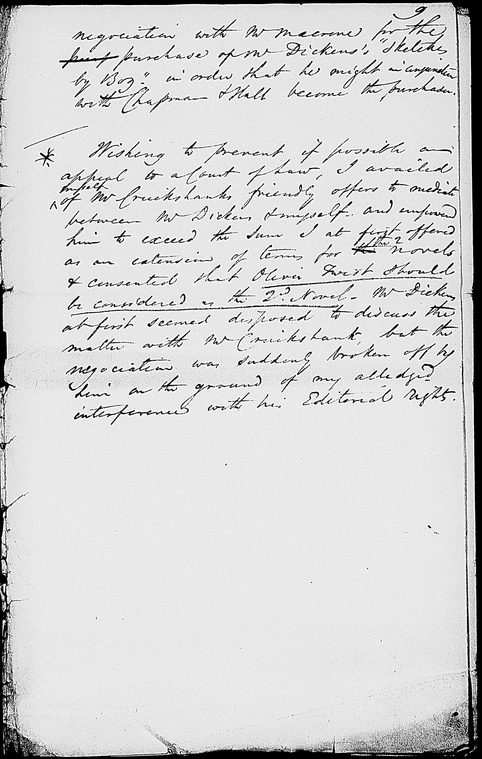 9
negociation with Mr Macrone for the
purchase of Mr Dickens's "Sketches
by Boz" in order that he might in conjunction
with Chapman & Hall become the purchaser.
* Wishing to prevent if possible an
appeal to a Court of Law, I availed
myself
of Mr Cruikshanks friendly offers to mediate
between Mr Dickens & myself. and empowered
him to exceed the sum I at first offered
as an extension of terms for the 2 novels
& consented that Oliver Twist should
be considered as the 2d Novel. Mr Dickens
at first seemed disposed to discuss the
matter with Mr Cruickshank, but the
negociation was suddenly broken off by
him on the ground of my alledged
interference with his Editorial rights.